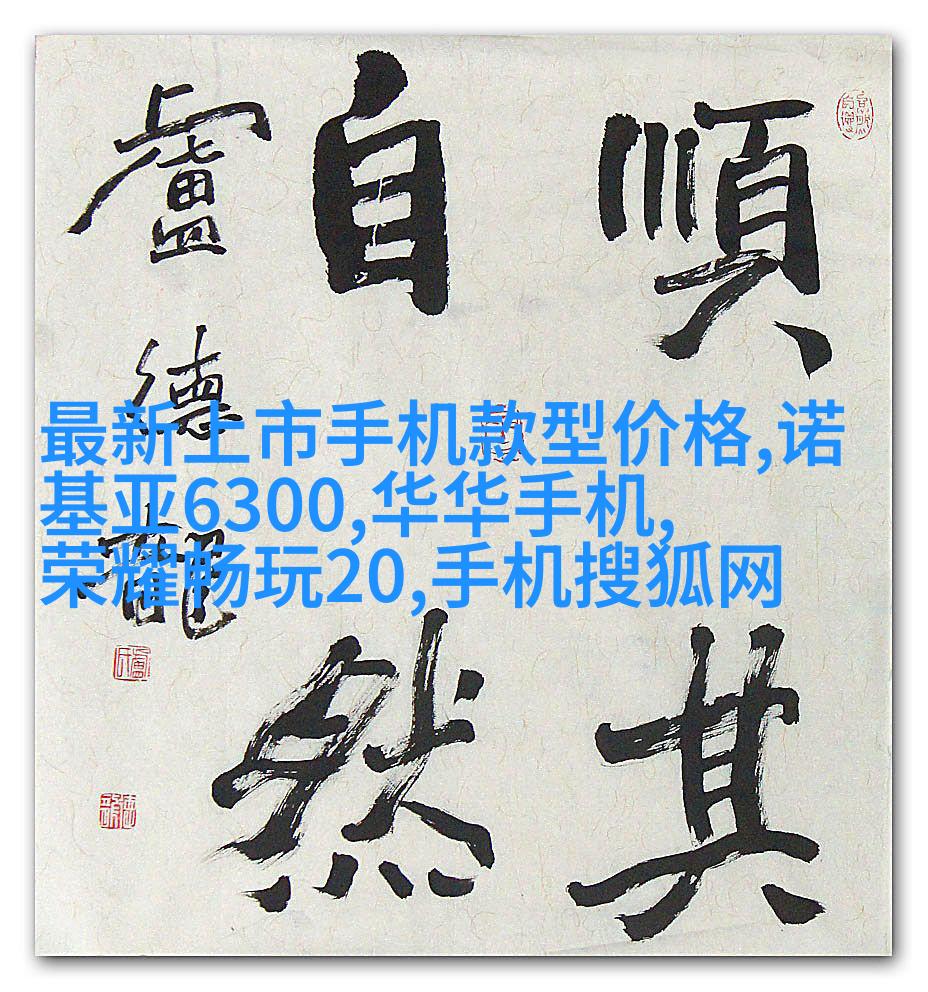 順其
自然
盧德龍
最新上市手机款型价格,诺
基亚6300,华华手机,
荣耀畅玩20,手机搜狐网